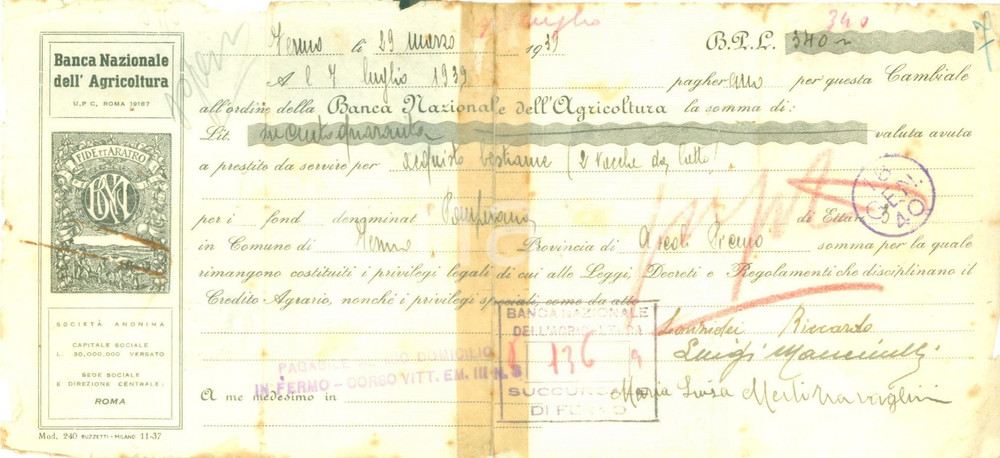 Banca Nazionale
dell' Agricoltura
U.P.C, ROMA 19187
FIDE ET ARATRO
BNA
SOCIETÀ ANONIMA
CAPITALE SOCIALE
L. 30,000,000 VERSATO
SEDE SOCIALE
E DIREZIONE CENTRALE:
ROMA
Mod. 240 BUZZETTI - MILANO 11-37
luglio
340
Fermo li 29 marzo 1939 B.P.L. 340
Al 7 luglio 1939 pagheranno per questa Cambiale
all'ordine della Banca Nazionale dell'Agricoltura la somma di:
Lit. trecentoquaranta valuta avuta
a prestito da servire per acquisto bestiame (2 vacche da latte)
18
GEN.
40
per i fond denominat di Ettari
in Comune di Fermo Provincia di Ascoli Piceno somma per la quale
rimangono costituiti i privilegi legali di cui alle Leggi, Decreti e Regolamenti che disciplinano il
Credito Agrario, nonchè i privilegi speciali, come da atto
BANCA NAZIONALE
DELL'AGRICOLTURA
136
9
SUCCURSALE
DI FERMO
PAGABILE DOMICILIO
IN FERMO - CORSO VITT. EM. III N. 3
A me medesimo in
Riccardo
Luigi Mancinelli
Maria Luisa